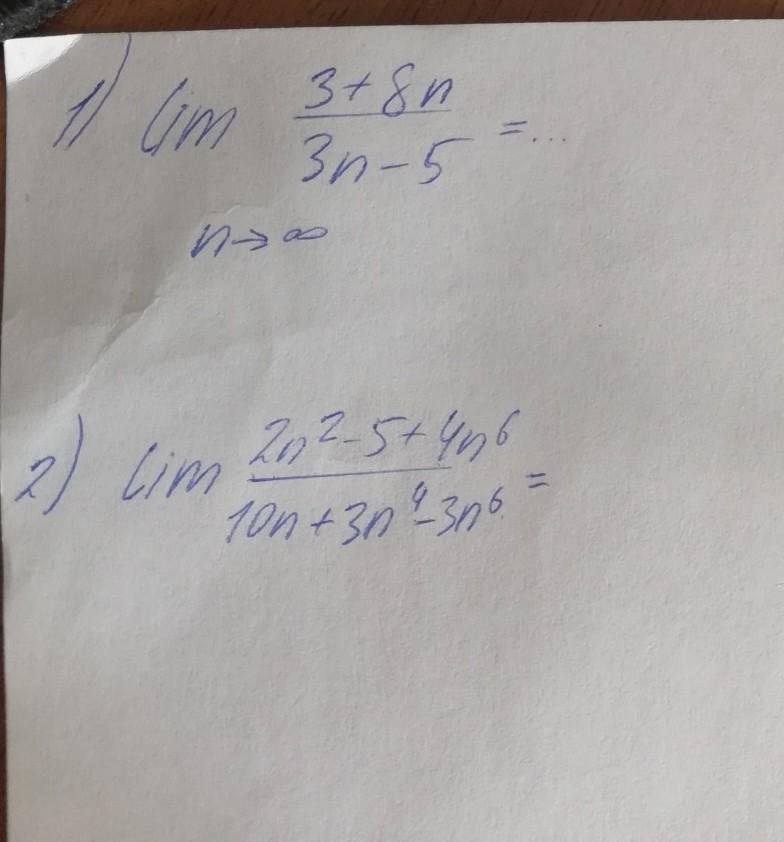 1) lim 3+8n / 3n-5 =...
n→∞
2) lim 2n²-5+4n⁶ / 10n+3n⁴-3n⁶ =